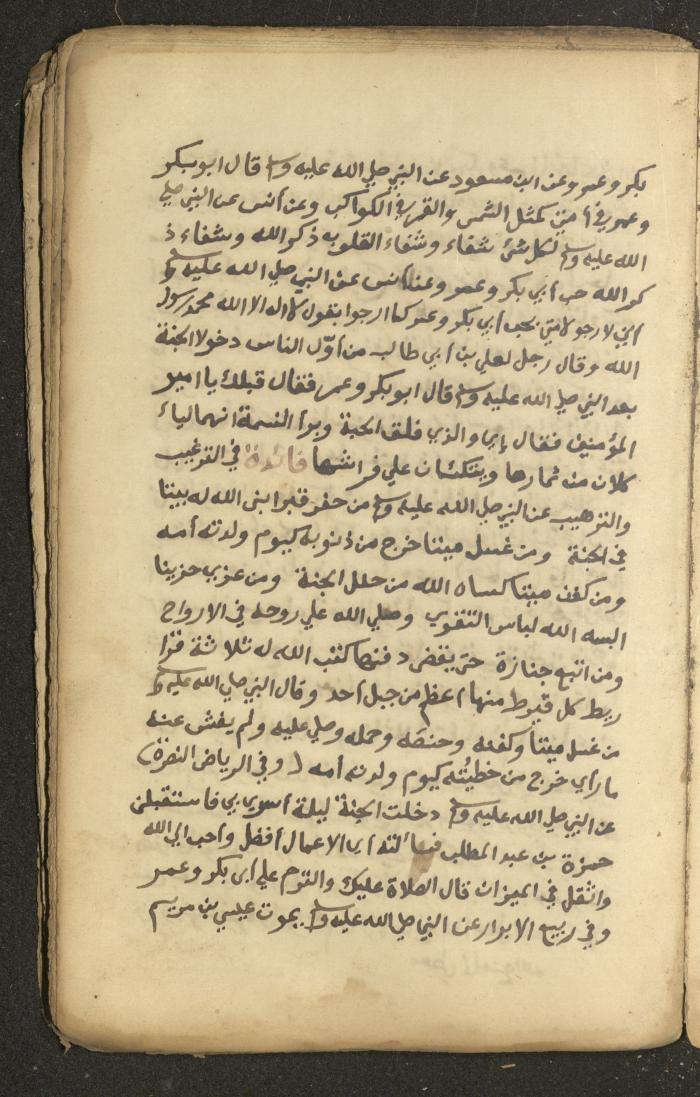 بكر وعمر وعن ابن مسعود عن النبي صلي الله عليه وسلم قال ابو بكر
وعمر في أمتي كمثل الشمس والقمر في الكواكب وعن أنس عن النبي صلي
الله عليه وسلم لكل شئ شفاء وشفاء القلوب ذكر الله وشفاء ذ
كر الله حب أبي بكر وعمر وعن أنس عن النبي صلي الله عليه وسلم
اني لا رجو لامتي بحب أبي بكر وعمر كما ارجوا بقول لا اله الا الله محمد رسول
الله وقال رجل لعلي بن أبي طالب من أوّل الناس دخولا الجنة
بعد النبي صلي الله عليه وسلم قال ابو بكر وعمر فقال قبلك يا امير
المؤمنين فقال إي والذي فلق الحبة وبرأ النسمة انهما ليأ
كلان من ثمارها ويتكئان علي فراشها فائدة في الترغيب
والترهيب عن النبي صلي الله عليه وسلم من حفر قبرا بنى الله له بيتا
في الجنة ومن غسل ميتا خرج من ذنوبه كيوم ولدته أمه
ومن كفن ميتا كساه الله من حلل الجنة ومن عزي حزينا
البسه الله لباس التقوي وصلي الله علي روحه في الارواح
ومن اتبع جنازة حتى يقضى دفنها كتب الله له ثلاثة قرا
ريط كل قيرط منها أعظم من جبل أحد وقال النبي صلي الله عليه وسلم
من غسل ميتا وكفنه وحنطه وحمله وصلي عليه ولم يفش عنه
ما رأي خرج من خطيئته كيوم ولدته أمه (وفي الرياض النضرة)
عن النبي صلي الله عليه وسلم دخلت الجنة ليلة أسري بي فاستقبلني
حمزة بن عبد المطلب فسألته أي الاعمال أفضل وأحب الي الله
واثقل في الميزان قال الصلاة عليك والترحم علي أبي بكر وعمر
وفي ربيع الابرار عن النبي صلي الله عليه وسلم يموت عيسي بن مريم